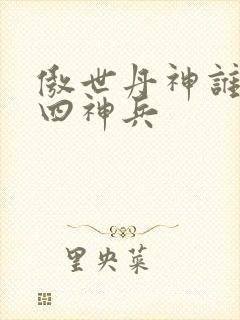 傲世丹神誰
四神兵
里央菜